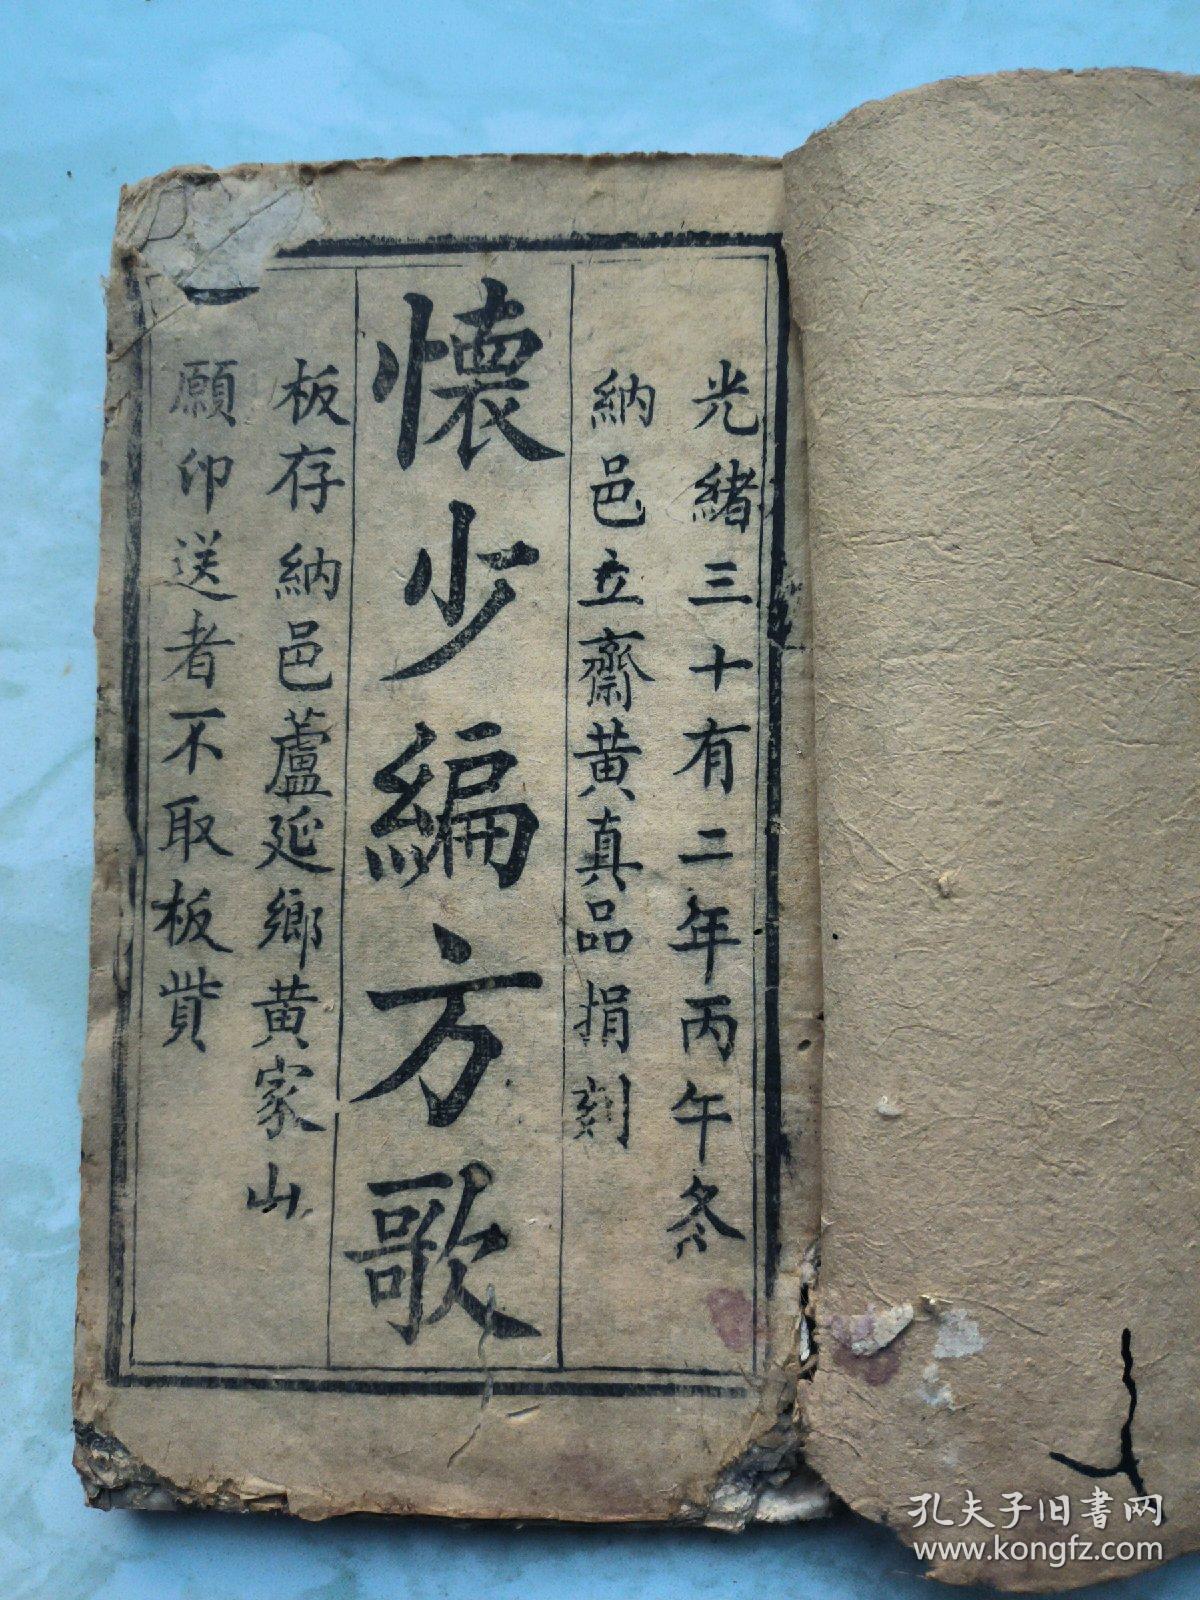 光緒三十有二年丙午冬
納邑立齋黃真品捐刻
懷少編方歌
板存納邑蘆延鄉黃家山
願印送者不取板貲
孔夫子旧书网
www.kongfz.com